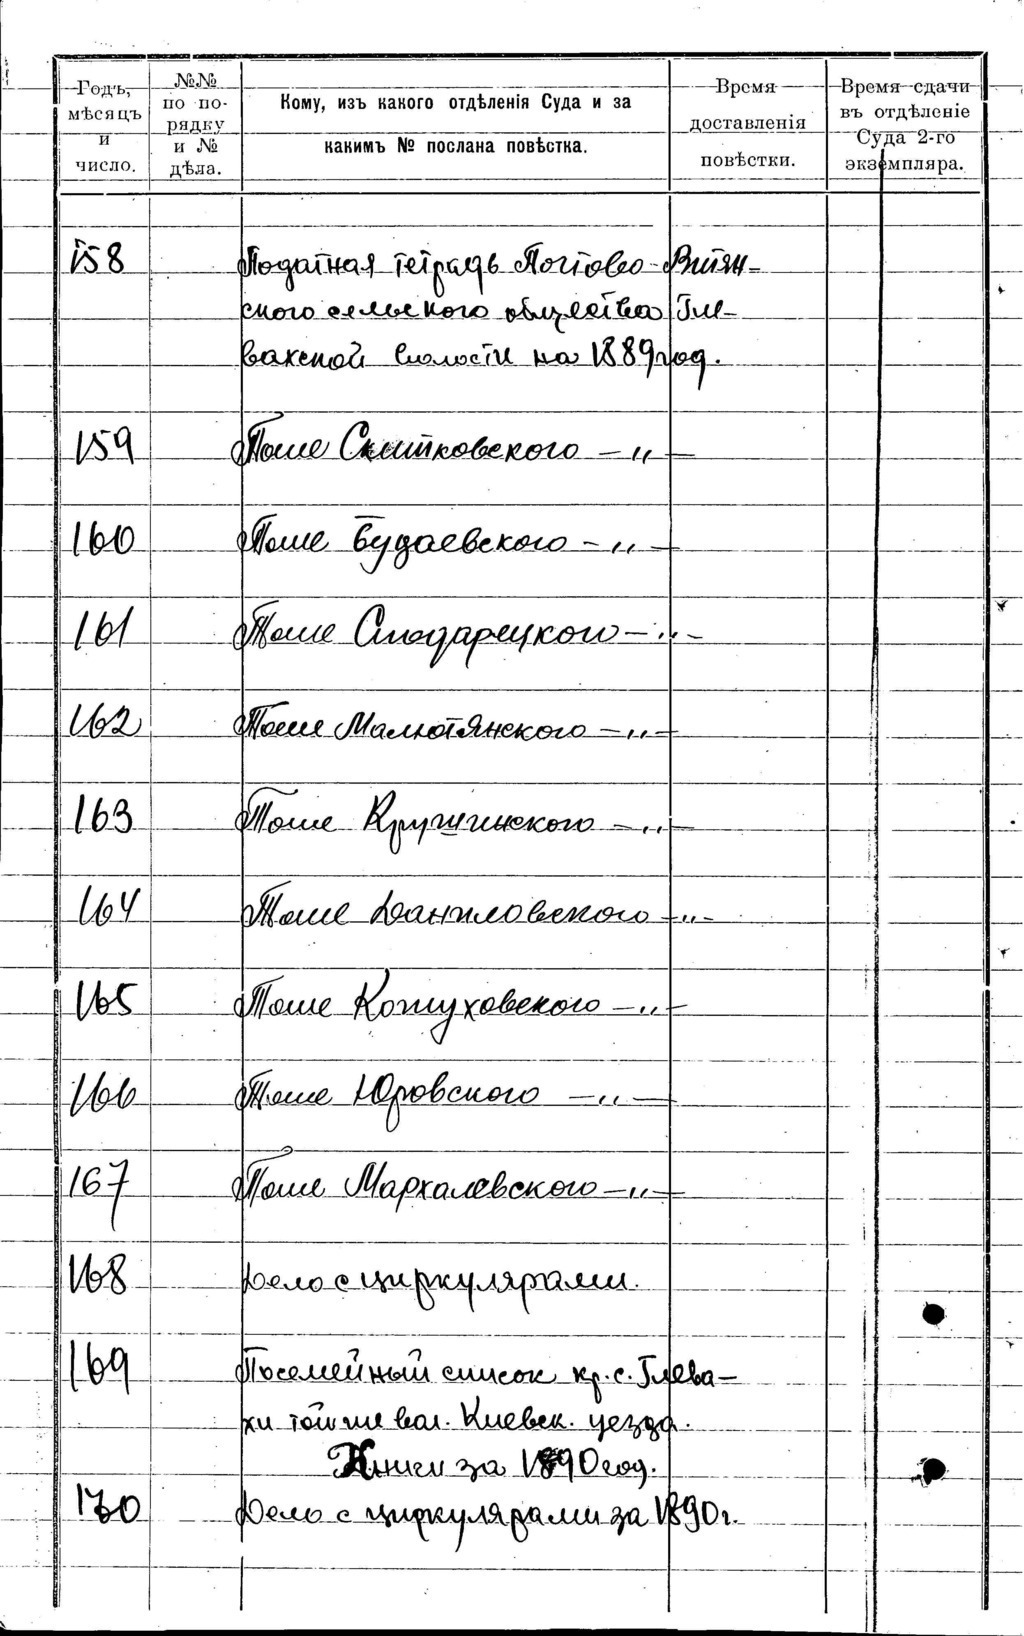 Годъ, мѣсяцъ и число.
№№ по порядку и № дѣла.
Кому, изъ какого отдѣленія Суда и за какимъ № послана повѣстка.
Время доставленія повѣстки.
Время сдачи въ отдѣленіе Суда 2-го экземпляра.
158 Податная тетрадь Постово-Витян-
ского сельского общества Гле-
вахской волости на 1889 год.
159 Тоже Скитковского – „ –
160 Тоже Будаевского – „ –
161 Тоже Сподарецкого – „ –
162 Тоже Малютянского – „ –
163 Тоже Кружчинского – „ –
164 Тоже Даниловского – „ –
165 Тоже Кожуховского – „ –
166 Тоже Юровского – „ –
167 Тоже Мархалевского – „ –
168 Дело с циркулярами.
169 Посемейный список кр. с. Глева-
хи той же вол. Киевск. уезда.
Книги за 1890 год.
170 Дело с циркулярами за 1890 г.